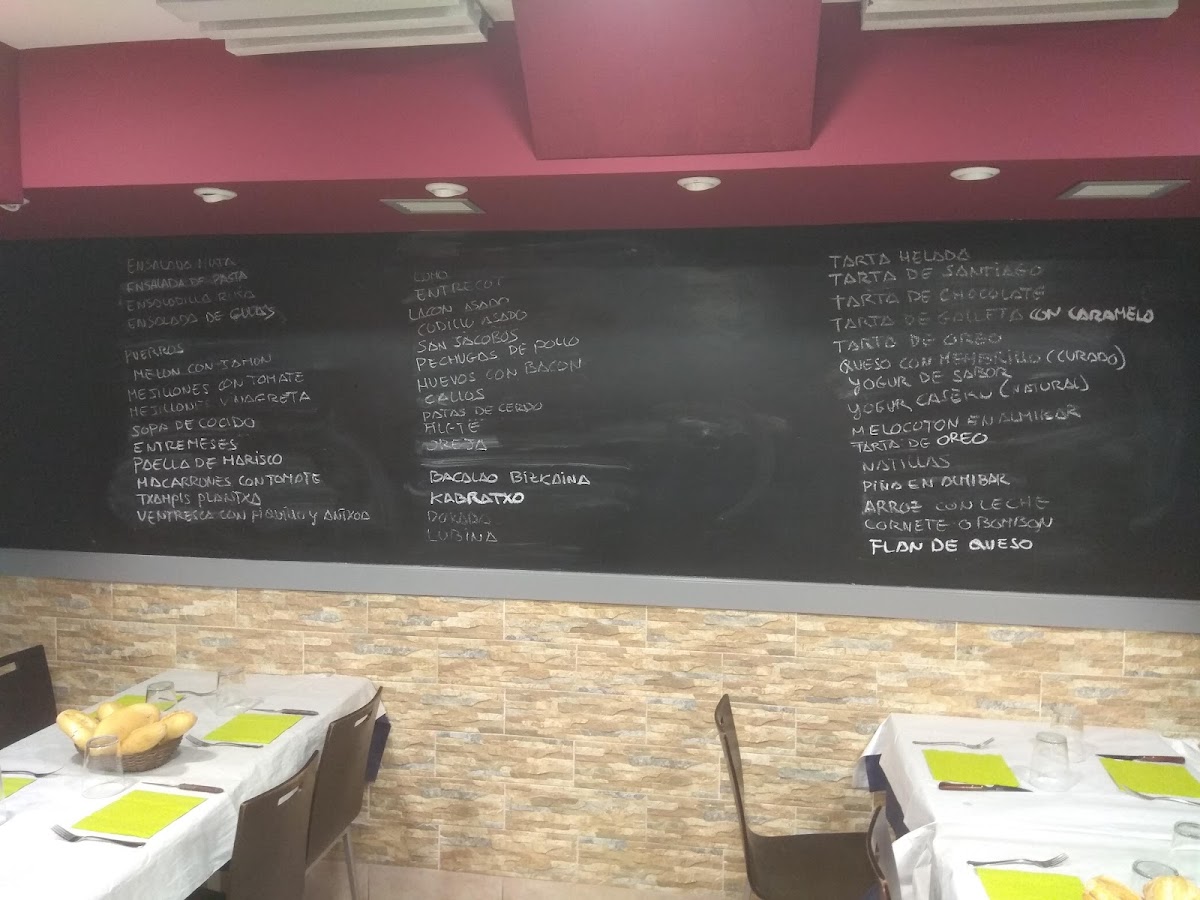 ENSALADA MIXTA
ENSALADA DE PASTA
ENSALADILLA RUSA
ENSALADA DE GULAS
PUERROS
MELON CON JAMON
MEJILLONES CON TOMATE
MEJILLONES VINAGRETA
SOPA DE COCIDO
ENTREMESES
PAELLA DE MARISCO
MACARRONES CON TOMATE
TXAMPIS PLANTXA
VENTRESCA CON PIQUILLO Y ANTXOA
LOMO
ENTRECOT
LACON ASADO
CODILLO ASADO
SAN JACOBOS
PECHUGAS DE POLLO
HUEVOS CON BACON
CALLOS
PATAS DE CERDO
FILETE
OREJA
BACALAO BIZKAINA
KABRATXO
DORADA
LUBINA
TARTA HELADA
TARTA DE SANTIAGO
TARTA DE CHOCOLATE
TARTA DE GALLETA CON CARAMELO
TARTA DE OREO
QUESO CON MEMBRILLO (CURADO)
YOGUR DE SABOR
YOGUR CASERO (NATURAL)
MELOCOTON EN ALMIBAR
TARTA DE OREO
NATILLAS
PIÑA EN ALMIBAR
ARROZ CON LECHE
CORNETE O BOMBON
FLAN DE QUESO